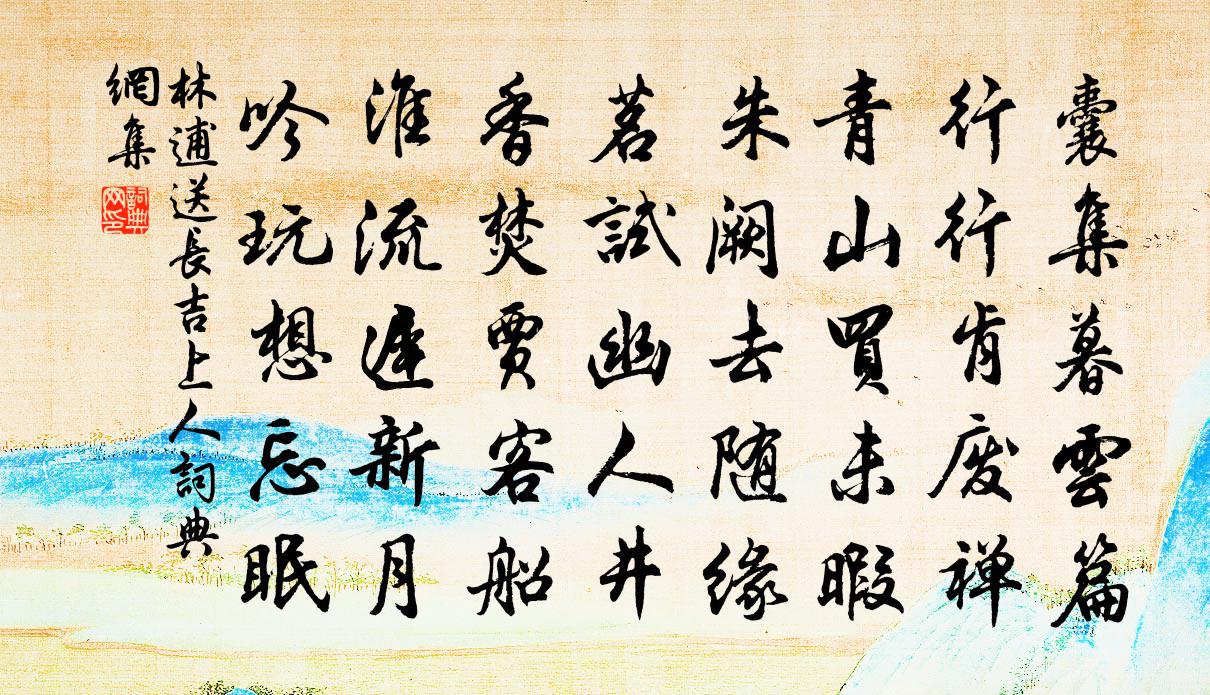 囊集暮雲篇
行行肯废禅
青山買未暇
朱阙去随缘
茗試幽人井
香焚賈客船
淮流遲新月
吟玩想忘眠
林逋送長吉上人詞典
網集
詞典